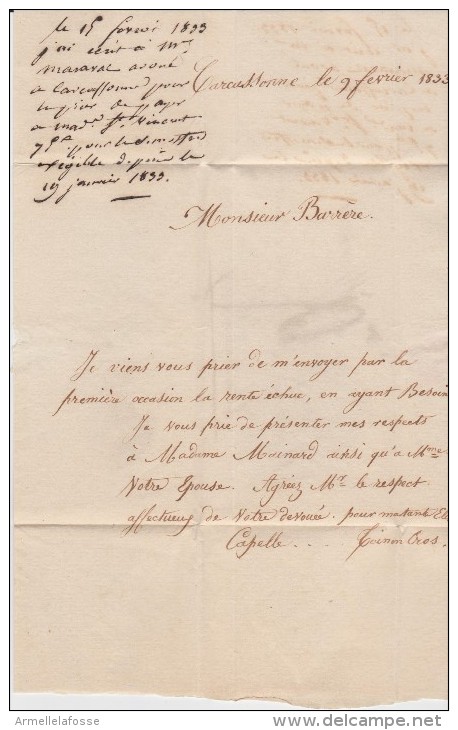 le 15 février 1833
j'ai écrit à Mr
Maraval avoué
à Carcassonne pour
le prier de payer
à mad.e St. Vincent
75 pour le semestre
exigible depuis le
19 janvier 1833.
Carcassonne le 9 fevrier 1833
Monsieur Barrère.
Je viens vous prier de m'envoyer par la
première occasion la rente échue, en ayant Besoin
Je vous prie de présenter mes respects
à Madame Moinard ainsi qu'a Mme
Votre Epouse. Agréez Mr. le respect
affectueux de Votre devouée. pour ma tante
Capelle.. Toinon Cros.
Armellelafosse
www.delcampe.net